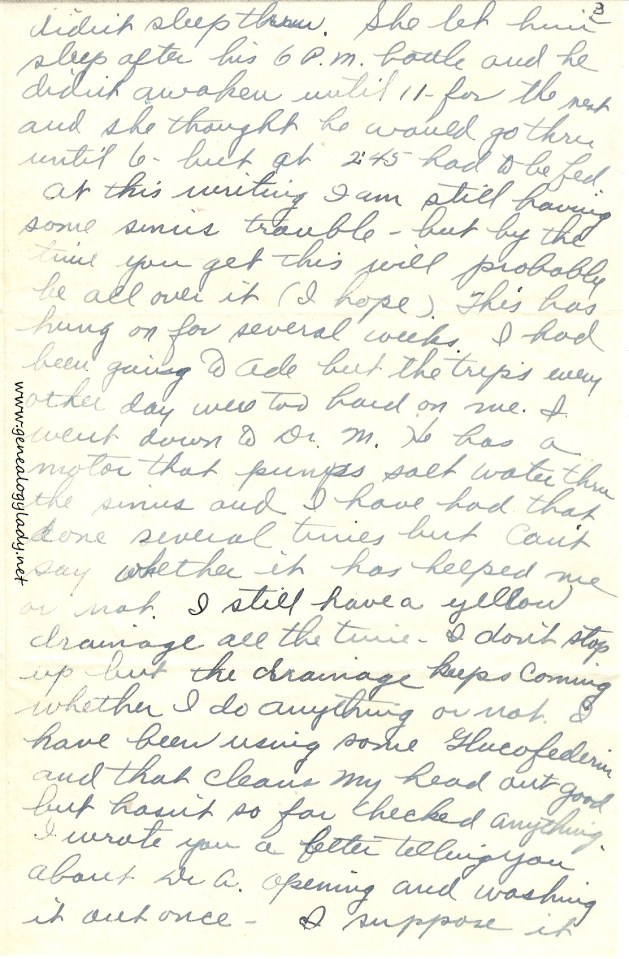 3
didn't sleep thru. She let him
sleep after his 6 P.M. bottle and he
didn't awaken until 11- for the next
and she thought he would go thru
until 6- but at 2:45 had to be fed.
At this writing I am still having
some sinus trouble - but by the
time you get this will probably
be all over it (I hope). This has
hung on for several weeks. I had
been going to Ade but the trips every
other day were too hard on me. I
went down to Dr. M. He has a
motor that pumps salt water thru
the sinus and I have had that
done several times but can't
say whether it has helped me
or not. I still have a yellow
drainage all the time - I don't stop
up but the drainage keeps coming
whether I do anything or not. I
have been using some Glucofedrin
and that cleans my head out good
but hasn't so far checked anything.
I wrote you a letter telling you
about Dr A. opening and washing
it out once - I suppose it
www.genealogylady.net